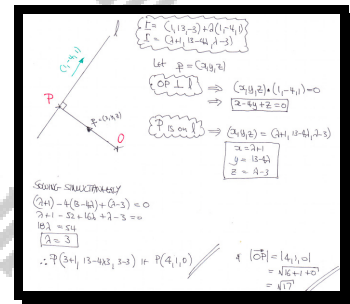 l
(1,-4,1)
P
p=(x,y,z)
O
r = (1,13,-3)+λ(1,-4,1)
r = (λ+1, 13-4λ, λ-3)
Let p = (x,y,z)
OP ⊥ l ⇒ (x,y,z)•(1,-4,1)=0
⇒ x-4y+z=0
P is on l ⇒ (x,y,z) = (λ+1, 13-4λ, λ-3)
x = λ+1
y = 13-4λ
z = λ-3
SOLVING SIMULTANEOUSLY
(λ+1) - 4(13-4λ) + (λ-3) = 0
λ+1 - 52 + 16λ + λ - 3 = 0
18λ = 54
λ = 3
∴ P(3+1, 13-4×3, 3-3) IE P(4,1,0)
& |OP| = |4,1,0|
= √16+1+0
= √17